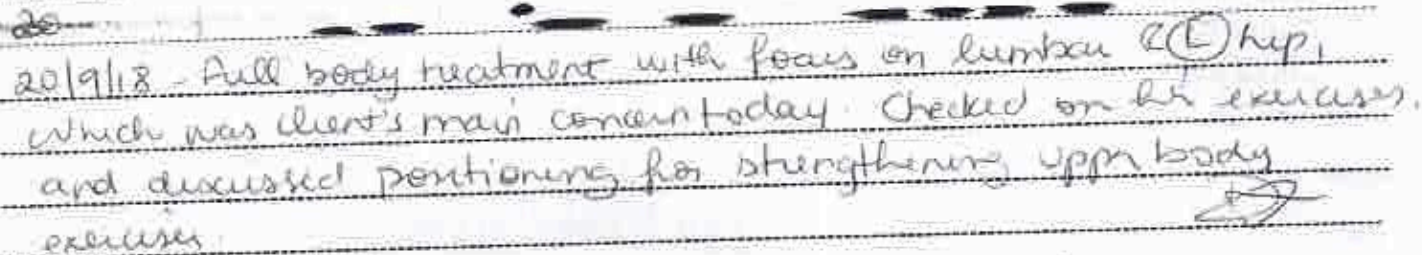 20
20/9/18 - Full body treatment with focus on lumbar & (L) hip,
which was client's main concern today. Checked on his exercises,
and discussed positioning for strengthening upper body
exercises